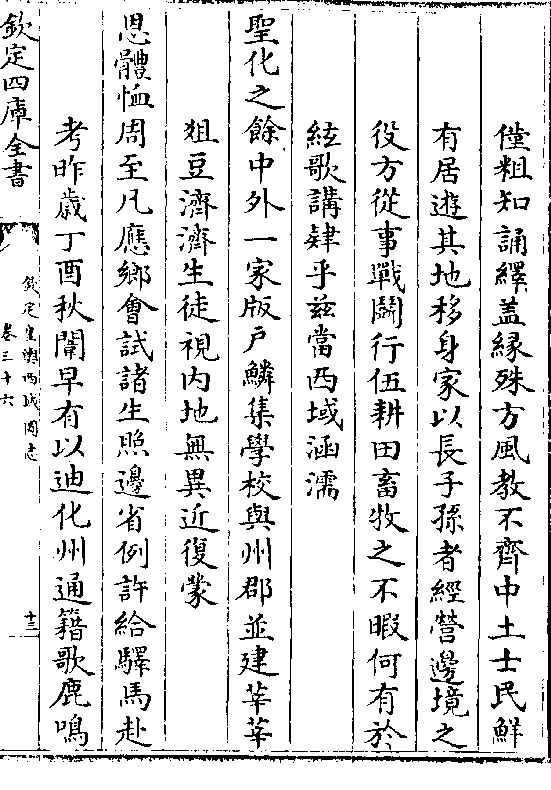 僅粗知誦繹葢緣殊方風教不齊中土士民鮮
有居遊其地移身家以長子孫者經營邊境之
役方從事戰鬭行伍耕田畜牧之不暇何有於
絃歌講肄乎茲當西域涵濡
聖化之餘中外一家版戶鱗集學校與州郡並建莘莘
俎豆濟濟生徒視内地無異近復蒙
恩體恤周至凡應鄉會試諸生照邊省例許給驛馬赴
考昨歲丁酉秋闈早有以迪化州通籍歌鹿鳴
欽定四庫全書
欽定皇輿西域圖志
卷三十六
十三